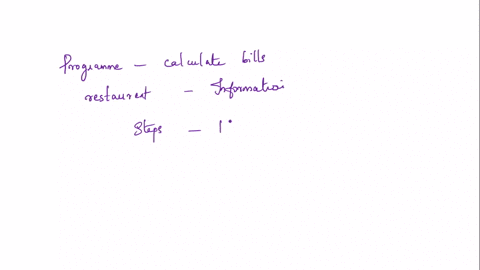 Programme - calculate bills
restaurent - Information
Steps - 1